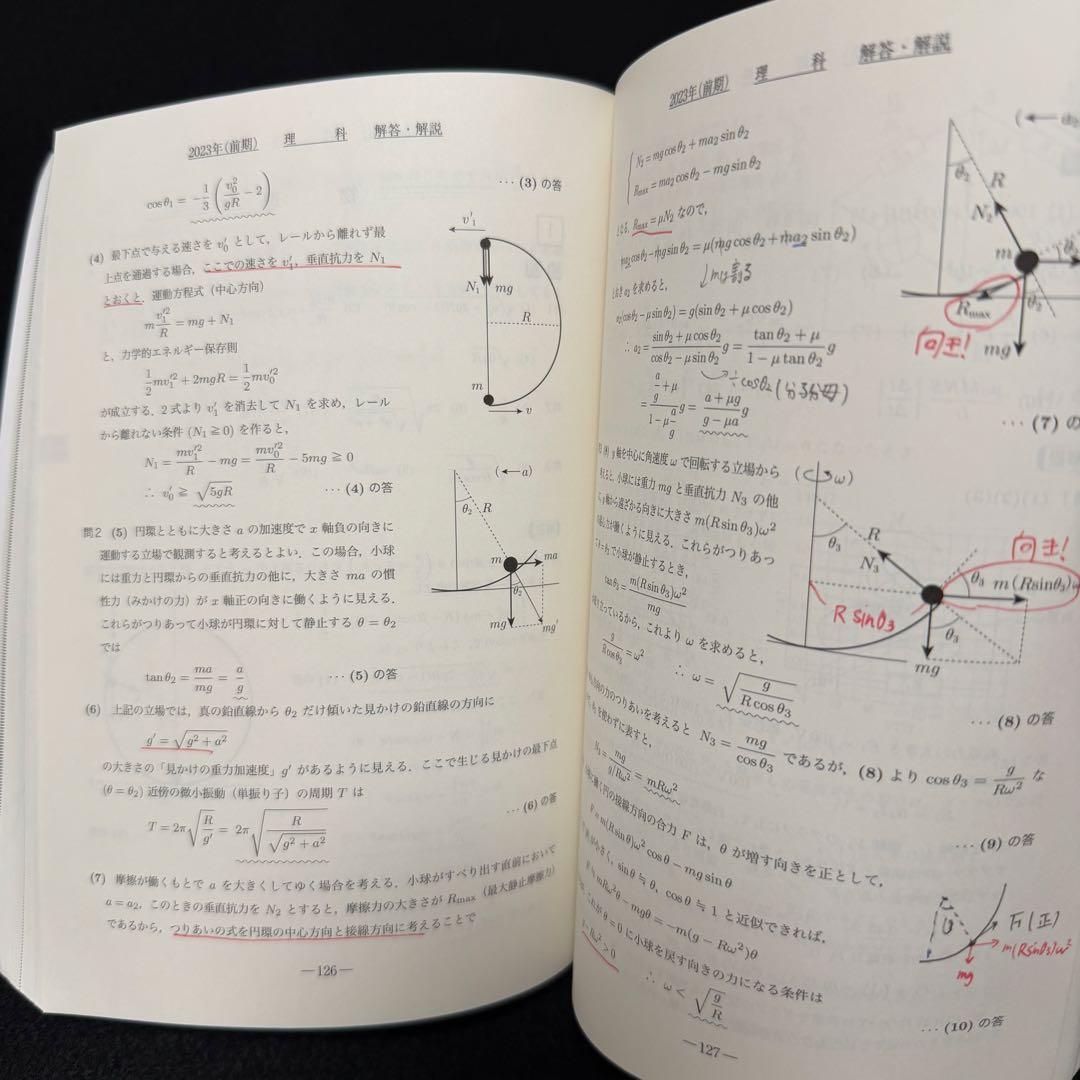 2023年(前期) 理 科 解答・解説
cosθ₁ = −1/3 (v₀²/gR − 2) ··· (3) の答
(4) 最下点で与える速さを v₀′ として，レールから離れず最
上点を通過する場合，ここでの速さを v₁′，垂直抗力を N₁
とおくと，運動方程式（中心方向）
m v₁′²/R = mg + N₁
と，力学的エネルギー保存則
1/2 mv₁′² + 2mgR = 1/2 mv₀′²
が成立する．2 式より v₁′ を消去して N₁ を求め，レール
から離れない条件 (N₁ ≧ 0) を作ると，
N₁ = mv₁′²/R − mg = mv₀′²/R − 5mg ≧ 0
∴ v₀′ ≧ √5gR ··· (4) の答
v₁′
N₁
mg
R
m
v
問2 (5) 円環とともに大きさ a の加速度で x 軸負の向きに
運動する立場で観測すると考えるとよい．この場合，小球
には重力と円環からの垂直抗力の他に，大きさ ma の慣
性力（みかけの力）が x 軸正の向きに働くように見える．
これらがつりあって小球が円環に対して静止する θ = θ₂
では
tanθ₂ = ma/mg = a/g ··· (5) の答
(←a)
θ₂
R
m
ma
θ₂
mg
mg′
(6) 上記の立場では，真の鉛直線から θ₂ だけ傾いた見かけの鉛直線の方向に
g′ = √(g² + a²)
の大きさの「見かけの重力加速度」g′ があるように見える．ここで生じる見かけの最下点
(θ = θ₂) 近傍の微小振動（単振り子）の周期 T は
T = 2π√(R/g′) = 2π√(R/√(g² + a²)) ··· (6) の答
(7) 摩擦が働くもとで a を大きくしてゆく場合を考える．小球がすべり出す直前において
a = a₂．このときの垂直抗力を N₂ とすると，摩擦力の大きさが Rmax（最大静止摩擦力）
であるから，つりあいの式を円環の中心方向と接線方向に考えることで
—126—
2023年(前期) 理 科 解答・解説
N₂ = mg cosθ₂ + ma₂ sinθ₂
Rmax = ma₂ cosθ₂ − mg sinθ₂
となる．Rmax = μN₂ なので，
ma₂ cosθ₂ − mg sinθ₂ = μ(mg cosθ₂ + ma₂ sinθ₂)
↓mは割る
を求めると，
a₂(cosθ₂ − μ sinθ₂) = g(sinθ₂ + μ cosθ₂)
∴ a₂ = (sinθ₂ + μ cosθ₂)/(cosθ₂ − μ sinθ₂) g = (tanθ₂ + μ)/(1 − μ tanθ₂) g
÷cosθ₂(分子分母)
= (a/g + μ)/(1 − μ a/g) g = (a + μg)/(g − μa) g
··· (7) の
θ₂
R
N₂
m
Rmax
θ₂
mg
向き!
y 軸を中心に角速度 ω で回転する立場から
小球には重力 mg と垂直抗力 N₃ の他
y 軸から遠ざかる向きに大きさ m(R sinθ₃)ω²
が働くように見える．これらがつりあっ
で小球が静止するとき，
tanθ₃ = m(R sinθ₃)ω²/mg
が成り立っているから，これより ω を求めると，
g/(R cosθ₃) = ω² ∴ ω = √(g/(R cosθ₃)) ··· (8) の答
(ω)
θ₃
R
N₃
向き!
θ₃ m(Rsinθ₃)ω
R sinθ₃
θ₃
mg
方向の力のつりあいを考えると N₃ = mg/cosθ₃ であるが，(8) より cosθ₃ = g/Rω² な
を使わずに表すと，
N₃ = mg/(g/Rω²) = mRω² ··· (9) の答
円の接線方向の合力 F は，θ が増す向きを正として，
F = m(R sinθ)ω² cosθ − mg sinθ
が小さく，sinθ ≒ θ，cosθ ≒ 1 と近似できれば，
F ≒ mRω²θ − mgθ = −m(g − Rω²)θ
これが θ = 0 に小球を戻す向きの力になる条件は
g − Rω² > 0 ∴ ω < √(g/R) ··· (10) の答
F(正)
m(Rsinθ₃)ω²
mg
—127—